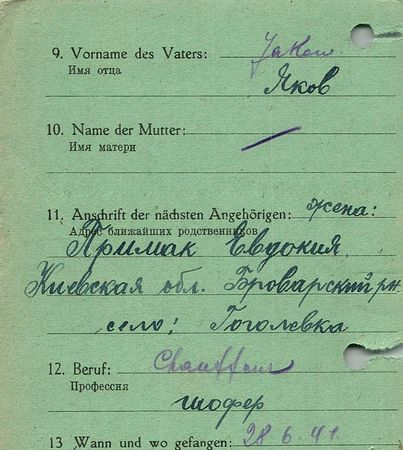 9. Vorname des Vaters: Jakow
Имя отца
Яков
10. Name der Mutter: —
Имя матери
11. Anschrift der nächsten Angehörigen: жена:
Адрес ближайших родственников
Примак Евдокия
Киевская обл. Броварский рн
село: Гоголевка
12. Beruf: Chauffeur
Профессия
шофер
13 Wann und wo gefangen: 28.6.41.